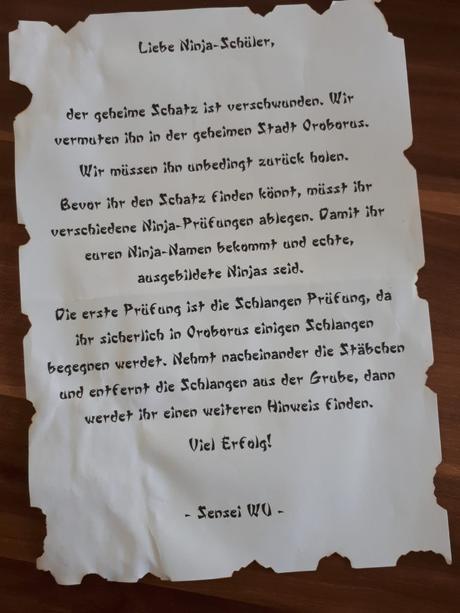 Liebe Ninja-Schüler,
der geheime Schatz ist verschwunden. Wir
vermuten ihn in der geheimen Stadt Oroborus.
Wir müssen ihn unbedingt zurück holen.
Bevor ihr den Schatz finden könnt, müsst ihr
verschiedene Ninja-Prüfungen ablegen. Damit ihr
euren Ninja-Namen bekommt und echte,
ausgebildete Ninjas seid.
Die erste Prüfung ist die Schlangen Prüfung, da
ihr sicherlich in Oroborus einigen Schlangen
begegnen werdet. Nehmt nacheinander die Stäbchen
und entfernt die Schlangen aus der Grube, dann
werdet ihr einen weiteren Hinweis finden.
Viel Erfolg!
- Sensei WU -